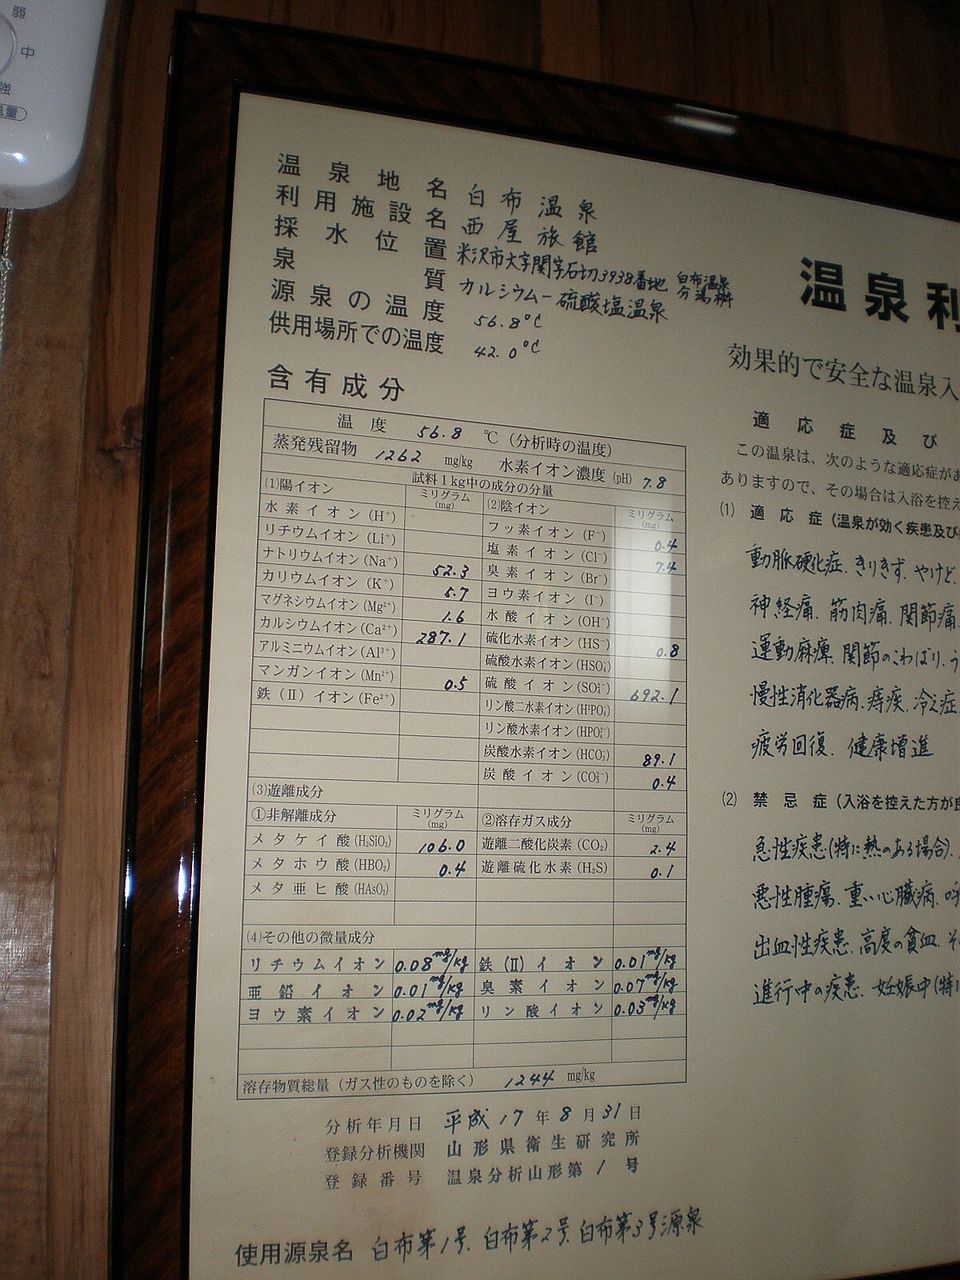 弱
中
強
風量
温泉地名 白布温泉
利用施設名 西屋旅館
採水位置 米沢市大字関字石切3938番地 白布温泉分湯桝
泉質 カルシウムー硫酸塩温泉
源泉の温度 56.8℃
供用場所での温度 42.0℃
含有成分
温度 56.8 ℃(分析時の温度)
蒸発残留物 1262 mg/kg 水素イオン濃度(pH) 7.8
試料1kg中の成分の分量
(1)陽イオン ミリグラム(mg) (2)陰イオン ミリグラム(mg)
水素イオン(H⁺) フッ素イオン(F⁻) 0.4
リチウムイオン(Li⁺) 塩素イオン(Cl⁻) 7.4
ナトリウムイオン(Na⁺) 52.3 臭素イオン(Br⁻)
カリウムイオン(K⁺) 5.7 ヨウ素イオン(I⁻)
マグネシウムイオン(Mg²⁺) 1.6 水酸イオン(OH⁻)
カルシウムイオン(Ca²⁺) 287.1 硫化水素イオン(HS⁻) 0.8
アルミニウムイオン(Al³⁺) 硫酸水素イオン(HSO₄⁻)
マンガンイオン(Mn²⁺) 0.5 硫酸イオン(SO₄²⁻) 692.1
鉄(Ⅱ)イオン(Fe²⁺) リン酸二水素イオン(H₂PO₄⁻)
リン酸水素イオン(HPO₄²⁻)
炭酸水素イオン(HCO₃⁻) 89.1
炭酸イオン(CO₃²⁻) 0.4
(3)遊離成分
①非解離成分 ミリグラム(mg) ②溶存ガス成分 ミリグラム(mg)
メタケイ酸(H₂SiO₃) 106.0 遊離二酸化炭素(CO₂) 2.4
メタホウ酸(HBO₂) 0.4 遊離硫化水素(H₂S) 0.1
メタ亜ヒ酸(HAsO₂)
(4)その他の微量成分
リチウムイオン 0.08mg/kg 鉄(Ⅱ)イオン 0.01mg/kg
亜鉛イオン 0.01mg/kg 臭素イオン 0.07mg/kg
ヨウ素イオン 0.02mg/kg リン酸イオン 0.03mg/kg
溶存物質総量(ガス性のものを除く) 1244 mg/kg
分析年月日 平成17年8月31日
登録分析機関 山形県衛生研究所
登録番号 温泉分析山形第1号
使用源泉名 白布第1号、白布第2号、白布第3号源泉
温泉利
効果的で安全な温泉入
適応症及び
この温泉は、次のような適応症があ
ありますので、その場合は入浴を控え
(1) 適応症(温泉が効く疾患及び
動脈硬化症、きりきず、やけど、
神経痛、筋肉痛、関節痛、
運動麻痺、関節のこわばり、う
慢性消化器病、痔疾、冷え症、
疲労回復、健康増進
(2) 禁忌症(入浴を控えた方が良
急性疾患(特に熱のある場合)、
悪性腫瘍、重い心臓病、呼
出血性疾患、高度の貧血、そ
進行中の疾患、妊娠中(特に